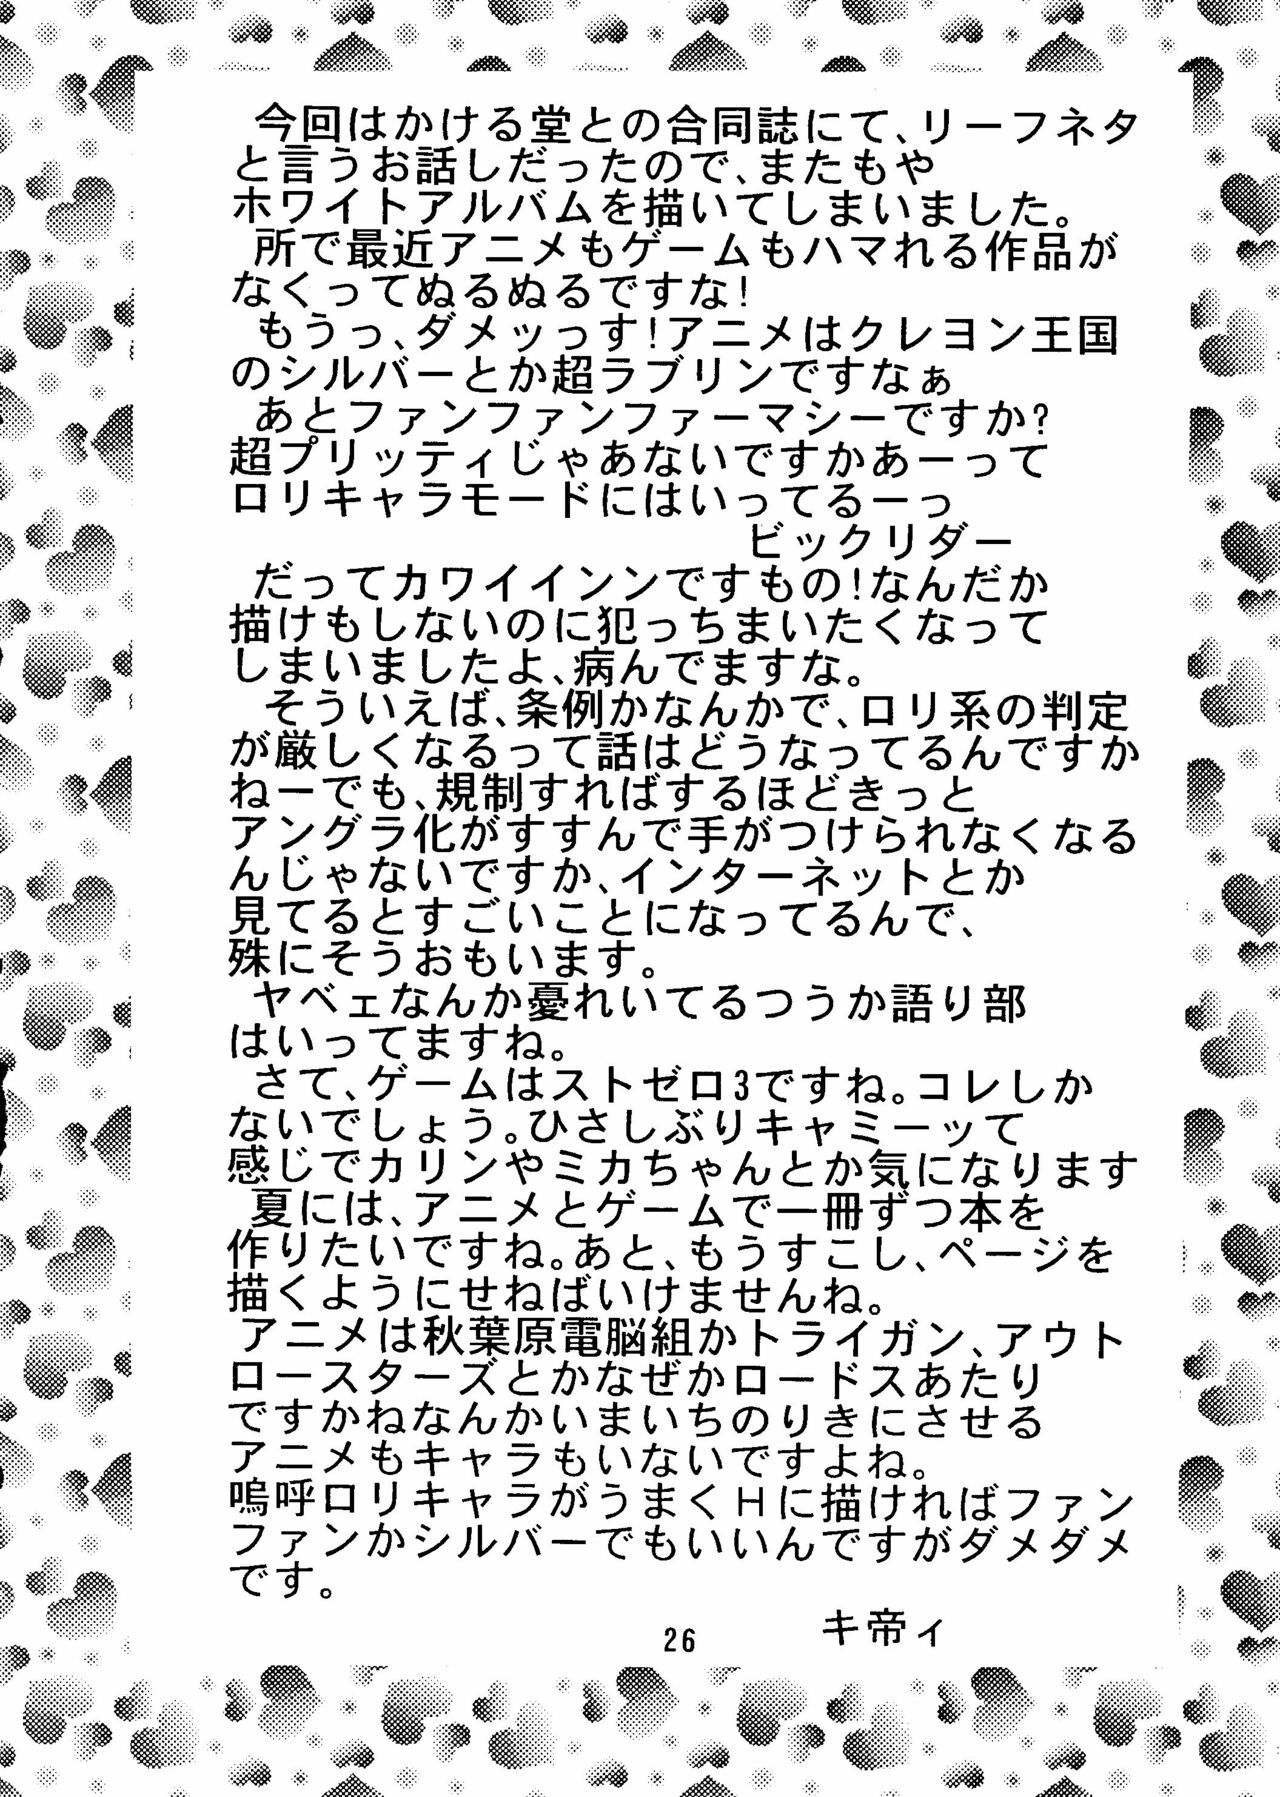 今回はかける堂との合同誌にて、リーフネタ
と言うお話しだったので、またもや
ホワイトアルバムを描いてしまいました。
所で最近アニメもゲームもハマれる作品が
なくってぬるぬるですな!
もうっ、ダメッっす!アニメはクレヨン王国
のシルバーとか超ラブリンですなぁ
あとファンファンファーマシーですか?
超プリッティじゃあないですかあーって
ロリキャラモードにはいってるーっ
ビックリダー
だってカワイインンですもの!なんだか
描けもしないのに犯っちまいたくなって
しまいましたよ、病んでますな。
そういえば、条例かなんかで、ロリ系の判定
が厳しくなるって話はどうなってるんですか
ねーでも、規制すればするほどきっと
アングラ化がすすんで手がつけられなくなる
んじゃないですか、インターネットとか
見てるとすごいことになってるんで、
殊にそうおもいます。
ヤベェなんか憂れいてるつうか語り部
はいってますね。
さて、ゲームはストゼロ3ですね。コレしか
ないでしょう。ひさしぶりキャミーッて
感じでカリンやミカちゃんとか気になります
夏には、アニメとゲームで一冊ずつ本を
作りたいですね。あと、もうすこし、ページを
描くようにせねばいけませんね。
アニメは秋葉原電脳組かトライガン、アウト
ロースターズとかなぜかロードスあたり
ですかねなんかいまいちのりきにさせる
アニメもキャラもいないですよね。
嗚呼ロリキャラがうまくＨに描ければファン
ファンかシルバーでもいいんですがダメダメ
です。
キ帝ィ
26